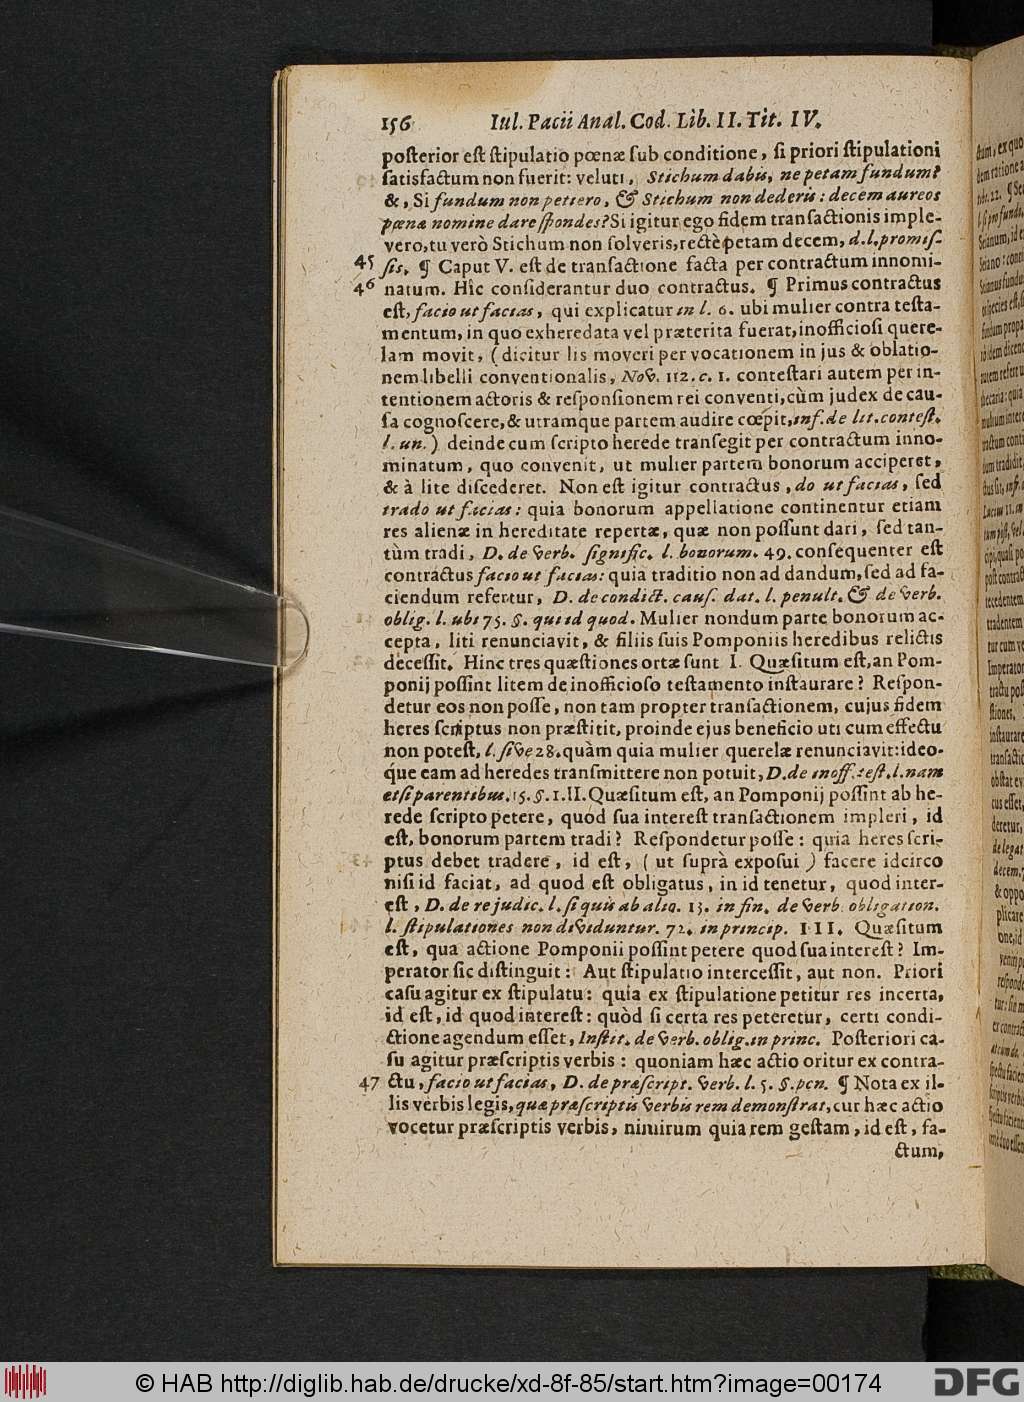 156 Iul. Pacii Anal. Cod. Lib. II. Tit. IV.
posterior est stipulatio pœnæ sub conditione, si priori stipulationi
satisfactum non fuerit: veluti, Stichum dabis, ne petam fundum?
&, Si fundum non petiero, & Stichum non dederis: decem aureos
pœnæ nomine dare spondes? Si igitur ego fidem transactionis imple-
vero, tu verò Stichum non solveris, rectè petam decem, d.l. promis-
45 sis. ¶ Caput V. est de transactione facta per contractum innomi-
46 natum. Hîc considerantur duo contractus. ¶ Primus contractus
est, facio ut facias, qui explicatur in l. 6. ubi mulier contra testa-
mentum, in quo exheredata vel præterita fuerat, inofficiosi quere-
lam movit, (dicitur lis moveri per vocationem in jus & oblatio-
nem libelli conventionalis, Nov. 112. c. 1. contestari autem per in-
tentionem actoris & responsionem rei conventi, cùm judex de cau-
sa cognoscere, & utramque partem audire cœpit, inf. de lit. contest.
l. un.) deinde cum scripto herede transegit per contractum inno-
minatum, quo convenit, ut mulier partem bonorum acciperet,
& à lite discederet. Non est igitur contractus, do ut facias, sed
trado ut facias: quia bonorum appellatione continentur etiam
res alienæ in hereditate repertæ, quæ non possunt dari, sed tan-
tùm tradi, D. de verb. signific. l. bonorum. 49. consequenter est
contractus facio ut facias: quia traditio non ad dandum, sed ad fa-
ciendum refertur, D. de condict. caus. dat. l. penult. & de verb.
oblig. l. ubi 75. §. qui id quod. Mulier nondum parte bonorum ac-
cepta, liti renunciavit, & filiis suis Pomponiis heredibus relictis
decessit. Hinc tres quæstiones ortæ sunt I. Quæsitum est, an Pom-
ponij possint litem de inofficioso testamento instaurare? Respon-
detur eos non posse, non tam propter transactionem, cujus fidem
heres scriptus non præstitit, proinde ejus beneficio uti cum effectu
non potest, l. sive 28. quàm quia mulier querelæ renunciavit: ideo-
que eam ad heredes transmittere non potuit, D. de inoff. test. l. nam
etsi parentibus. 15. §. 1. II. Quæsitum est, an Pomponij possint ab he-
rede scripto petere, quod sua interest transactionem impleri, id
est, bonorum partem tradi? Respondetur posse: quia heres scri-
ptus debet tradere, id est, (ut suprà exposui) facere idcirco
nisi id faciat, ad quod est obligatus, in id tenetur, quod inter-
est, D. de re judic. l. si quis ab alio. 13. in fin. de verb. obligation.
l. stipulationes non dividuntur. 72. in princip. III. Quæsitum
est, qua actione Pomponii possint petere quod sua interest? Im-
perator sic distinguit: Aut stipulatio intercessit, aut non. Priori
casu agitur ex stipulatu: quia ex stipulatione petitur res incerta,
id est, id quod interest: quòd si certa res peteretur, certi condi-
ctione agendum esset, Instit. de verb. oblig. in princ. Posteriori ca-
su agitur præscriptis verbis: quoniam hæc actio oritur ex contra-
47 ctu, facio ut facias, D. de præscript. verb. l. 5. §. pen. ¶ Nota ex il-
lis verbis legis, quæ præscriptis verbis rem demonstrat, cur hæc actio
vocetur præscriptis verbis, nimirum quia rem gestam, id est, fa-
ctum,
© HAB http://diglib.hab.de/drucke/xd-8f-85/start.htm?image=00174
DFG